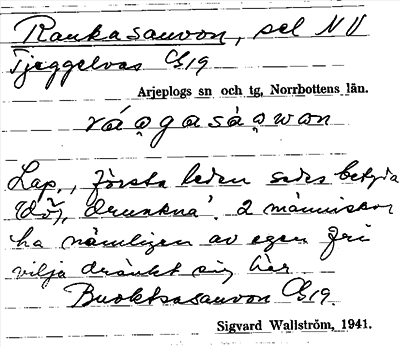 Raukasauvon, sel NV
Tjeggelvas G19
Arjeplogs sn och tg, Norrbottens län.
ráo̭gasáo̭won
Lap., första leden sades betyda
'dö, drunkna'. 2 människor
ha nämligen av egen fri
vilja dränkt sig här
Buoktsasauvon G19.
Sigvard Wallström, 1941.